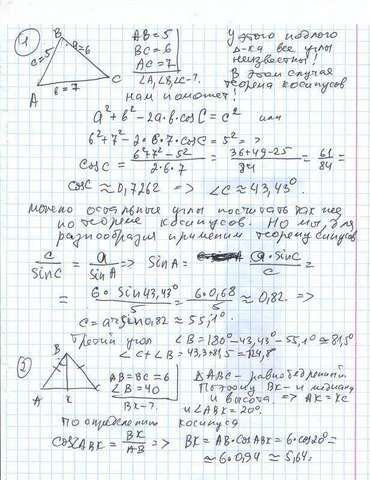 ① B
c=5 a=6
A b=7 C
AB=5
BC=6
AC=7
∠A,∠B,∠C-?
У этого подлого
Δ-ка все углы
неизвестны!
В этом случае
теорема косинусов
нам поможет!
a²+b²-2a·b·cosC=c² или
6²+7²-2·6·7·cosC=5² =>
cosC = (6²+7²-5²)/(2·6·7) = (36+49-25)/84 = 61/84 =
cosC ≈ 0,7262 => ∠C ≈ 43,43°
можно остальные углы посчитать так же
по теореме косинусов. Но мы, для
разнообразия применим теорему синусов
c/sinC = a/sinA => sinA = a·sinC/c =
= 6·sin43,43°/5 = 6·0,68/5 ≈ 0,82 =>
= arcsin0,82 ≈ 55,1°
Третий угол ∠B=180°-43,43°-55,1° ≈ 81,5°
∠C+∠B=43,3+81,5=124,8°
② B
A K C
AB=BC=6
∠B=40
BK-?
ΔABC- равнобедренный
Поэтому BK- и медиана
и высота => AK=KC
и ∠ABK=20°
По определению косинуса
cos∠ABK = BK/AB => BK=AB·cosABK=6·cos20°=
≈6·0,94 ≈ 5,64